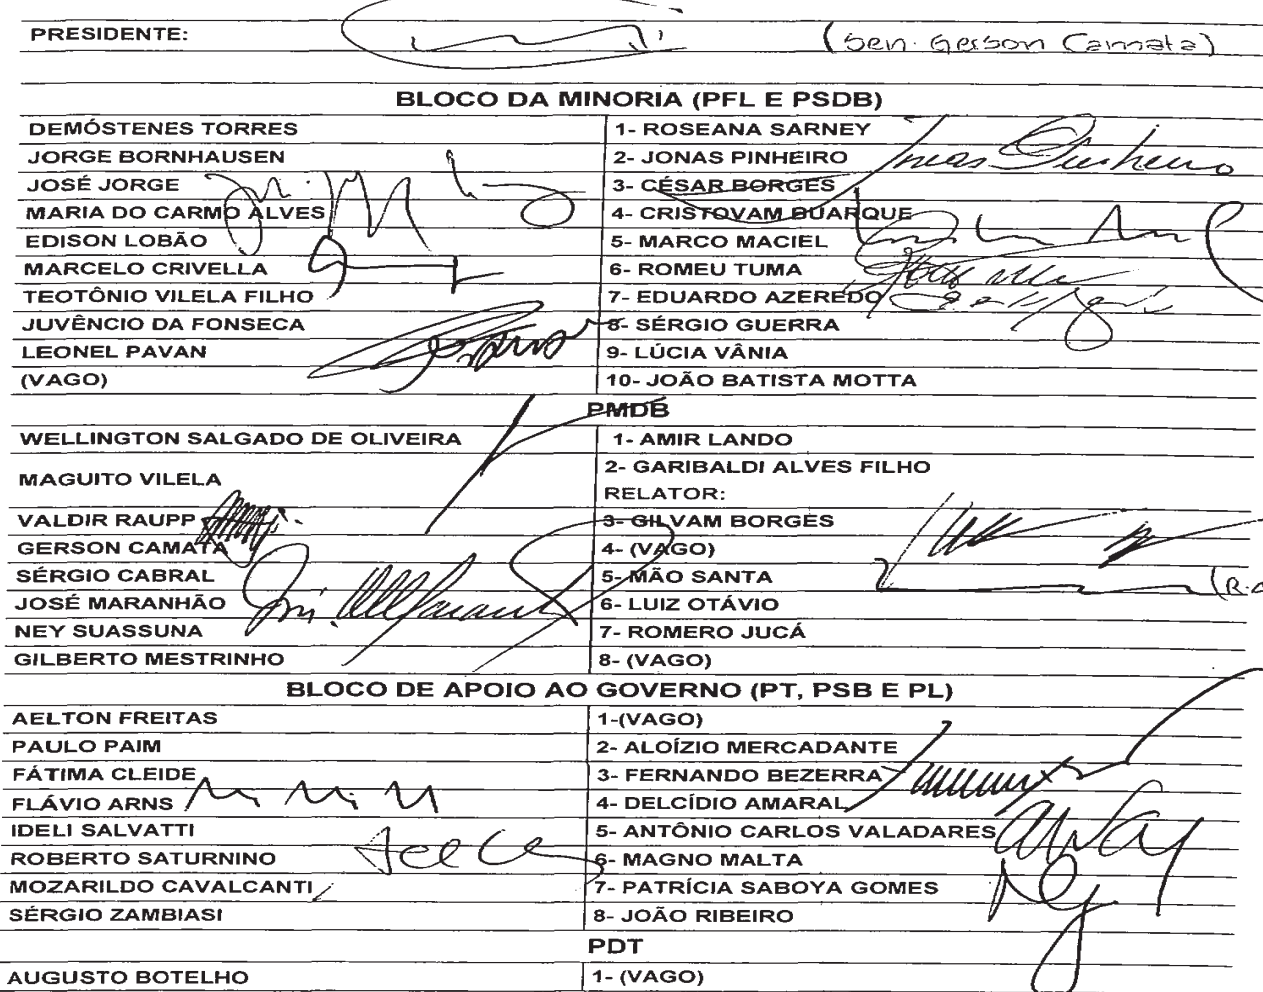 PRESIDENTE: (Sen. Gerson Camata)
BLOCO DA MINORIA (PFL E PSDB)
DEMÓSTENES TORRES 1- ROSEANA SARNEY
JORGE BORNHAUSEN 2- JONAS PINHEIRO Jonas Pinheiro
JOSÉ JORGE 3- CÉSAR BORGES
MARIA DO CARMO ALVES 4- CRISTOVAM BUARQUE
EDISON LOBÃO 5- MARCO MACIEL
MARCELO CRIVELLA 6- ROMEU TUMA
TEOTÔNIO VILELA FILHO 7- EDUARDO AZEREDO
JUVÊNCIO DA FONSECA 8- SÉRGIO GUERRA
LEONEL PAVAN 9- LÚCIA VÂNIA
(VAGO) 10- JOÃO BATISTA MOTTA
PMDB
WELLINGTON SALGADO DE OLIVEIRA 1- AMIR LANDO
MAGUITO VILELA 2- GARIBALDI ALVES FILHO
RELATOR:
VALDIR RAUPP 3- GILVAM BORGES
GERSON CAMATA 4- (VAGO)
SÉRGIO CABRAL 5- MÃO SANTA
JOSÉ MARANHÃO 6- LUIZ OTÁVIO
NEY SUASSUNA 7- ROMERO JUCÁ
GILBERTO MESTRINHO 8- (VAGO)
BLOCO DE APOIO AO GOVERNO (PT, PSB E PL)
AELTON FREITAS 1-(VAGO)
PAULO PAIM 2- ALOÍZIO MERCADANTE
FÁTIMA CLEIDE 3- FERNANDO BEZERRA
FLÁVIO ARNS 4- DELCÍDIO AMARAL
IDELI SALVATTI 5- ANTÔNIO CARLOS VALADARES
ROBERTO SATURNINO 6- MAGNO MALTA
MOZARILDO CAVALCANTI 7- PATRÍCIA SABOYA GOMES
SÉRGIO ZAMBIASI 8- JOÃO RIBEIRO
PDT
AUGUSTO BOTELHO 1- (VAGO)